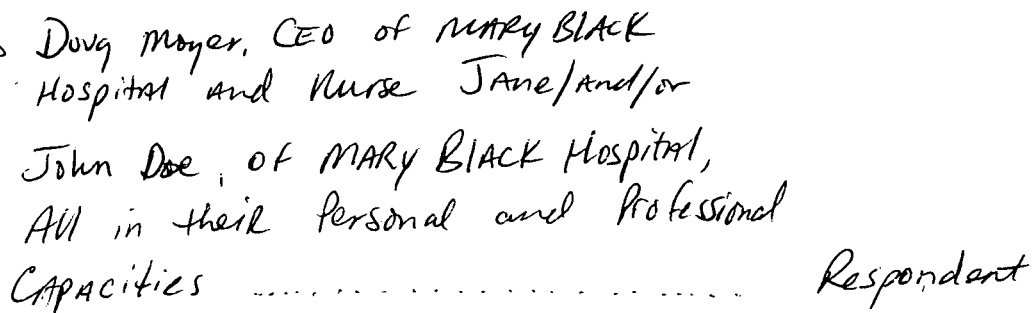 Doug Moyer, CEO of MARY BLACK
Hospital and Nurse JAne/And/or
John Doe, of MARY BLACK Hospital,
All in their Personal and Professional
CAPAcities ........................ Respondent